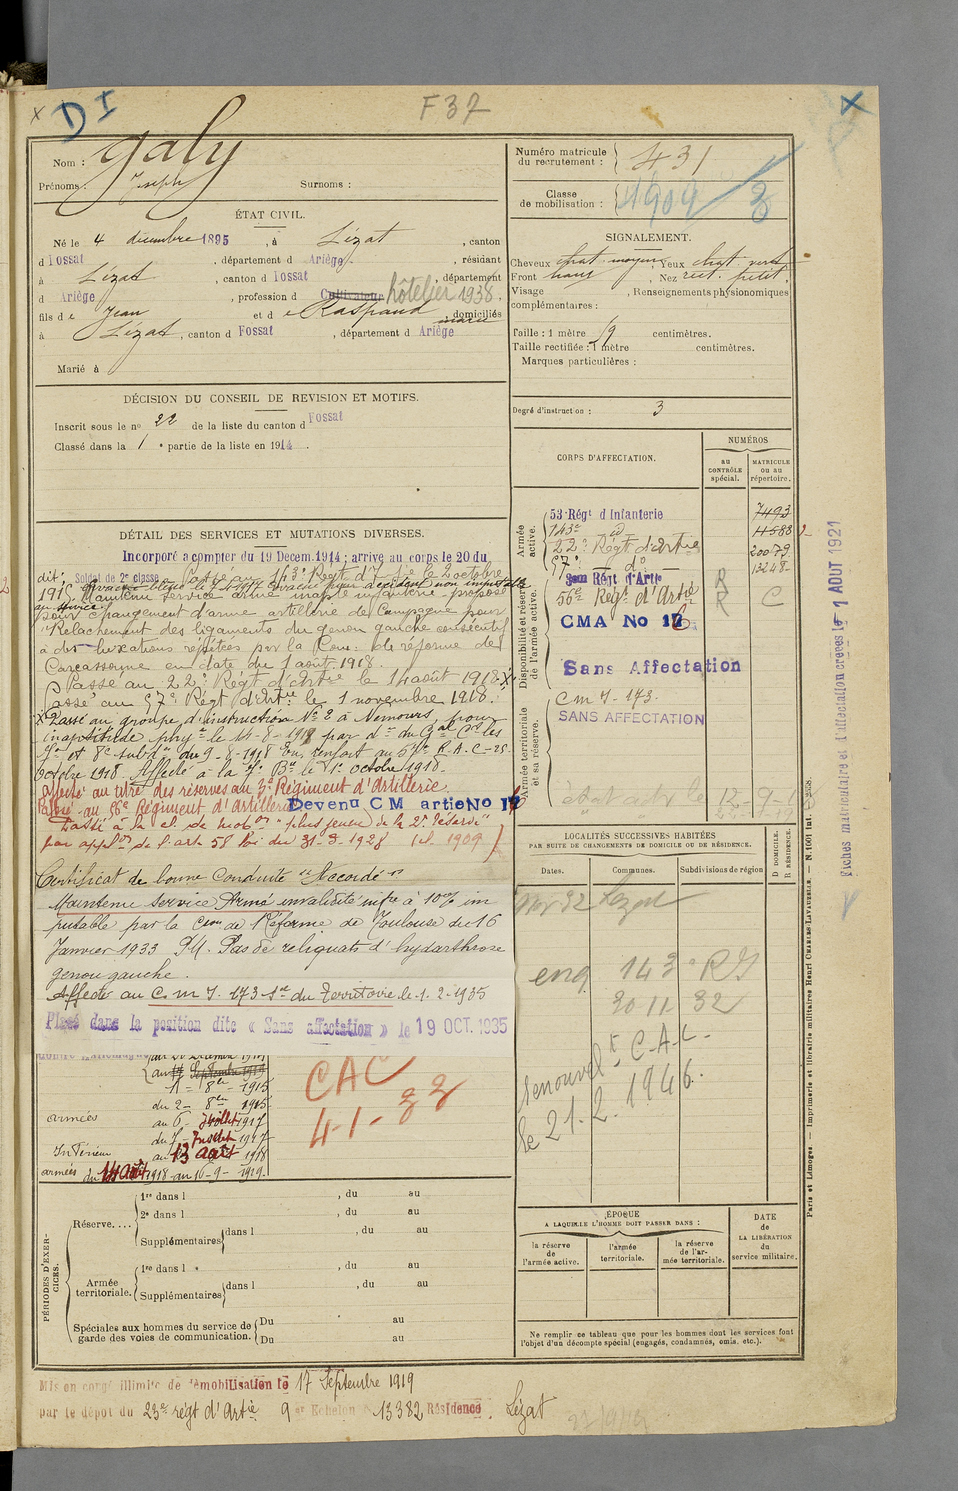 D I
F 37
Nom : Galy
Prénoms : Joseph Surnoms :
ÉTAT CIVIL.
Né le 4 décembre 1895, à Lézat, canton
d Fossat, département d Ariège, résidant
à Lézat, canton d Fossat, département
d Ariège, profession d Cultivateur hôtelier 1938.
fils de Jean et de Raspaud, domiciliés
à Lézat, canton d Fossat, département d Ariège
Marié à
DÉCISION DU CONSEIL DE REVISION ET MOTIFS.
Inscrit sous le nº 22 de la liste du canton d Fossat
Classé dans la 1e partie de la liste en 1914.
DÉTAIL DES SERVICES ET MUTATIONS DIVERSES.
Incorporé a compter du 19 Decem. 1914 ; arrivé au corps le 20 du
dit. Soldat de 2e classe Passé au 143e Régt d'I le 2 octobre
1915
Maintenu service armé inapte infanterie proposé
pour changement d'arme artillerie de Campagne pour
"Relachement des ligaments du genou gauche consécutif
à des luxations répétées par la Com: de réforme de
Carcassonne en date du 1 août 1918.
Passé au 22e Régt d'artie le 14 août 1918. X
Passé au 57e Régt d'Artie le 1 novembre 1918.
X Passé au groupe d'instruction No 2 à Nemours, pour
inaptitude phyque le 14-8-1918 par d.on du Gal Ct les
7e et 8e subd.ns du 9-8-1918 En renfort au 57e R.A.C. 25
Octobre 1918. Affecté à la 7e Bie le 1er octobre 1918.
Affecté au titre des réserves au 3e Régiment d'Artillerie
Passé au 56e Régiment d'Artillerie Devenu C M artie No 17
Passé à la cl. de mob.on "plus jeune de la 2e réserve"
par appl.on de l'art. 58 loi du 31-3-1928 (cl. 1909)
Certificat de bonne Conduite "Accordé"
Maintenu Service Armé invalidité infre à 10% im
putable par la Com de Réforme de Toulouse du 16
Janvier 1933 P.M. Pas de reliquats d'hydarthrose
genou gauche.
Affecté au C.M.I. 173 Son du Territoire le 1.2.1935
Placé dans la position dite « Sans affectation » le 19 OCT. 1935
contre Allemagne
au 1er Septembre 1915
du 2 - 8bre 1915
armées au 6 - Juillet 1917
du 7 - Juillet 1917
Intérieur au 13 août 1918
armées du 14 août 1918 au 16-9-1919.
CAC
4-1-33
PÉRIODES D'EXERCICES.
Réserve....
1re dans l , du au
2e dans l , du au
Supplémentaires dans l , du au
Armée territoriale.
1re dans l , du au
Supplémentaires dans l , du au
Spéciales aux hommes du service de garde des voies de communication.
Du au
Du au
Mis en congé illimité de démobilisation le 17 Septembre 1919
par le dépôt du 23e régt d'Artie 9e Echelon n° 13382 Résidence. Lézat
Numéro matricule du recrutement : 431
Classe de mobilisation : 1909
SIGNALEMENT.
Cheveux chat. moyens, Yeux chat. verts
Front haut, Nez rect. petit
Visage , Renseignements physionomiques
complémentaires :
Taille : 1 mètre 59 centimètres.
Taille rectifiée : 1 mètre centimètres.
Marques particulières :
Degré d'instruction : 3
CORPS D'AFFECTATION.
NUMÉROS
au CONTRÔLE spécial.
MATRICULE ou au répertoire.
Armée active.
53e Régt d'Infanterie 7493
143e d° 11588
22e Régt d'Artie 20079
57e d° 13248
Disponibilité et réserve de l'armée active.
3me Régt d'Artie R
56e Régt d'Artie R C
CMA No 17
Sans Affectation
Armée territoriale et sa réserve.
C m I - 173.
SANS AFFECTATION
LOCALITÉS SUCCESSIVES HABITÉES
PAR SUITE DE CHANGEMENTS DE DOMICILE OU DE RÉSIDENCE.
Dates. Communes. Subdivisions de région D. DOMICILE. R. RÉSIDENCE.
Lézat
enq 143e R I
30 11 32
renouvelt C.A.C.
le 21.2.1946.
ÉPOQUE
A LAQUELLE L'HOMME DOIT PASSER DANS :
la réserve de l'armée active.
l'armée territoriale.
la réserve de l'armée territoriale.
DATE de LA LIBÉRATION du service militaire.
Ne remplir ce tableau que pour les hommes dont les services font
l'objet d'un décompte spécial (engagés, condamnés, omis. etc.).
Fiches matriculaire et d'affectation créées le 1 AOUT 1921
Paris et Limoges. — Imprimerie et librairie militaires Henri CHARLES-LAVAUZELLE. — N. 1001 Int.